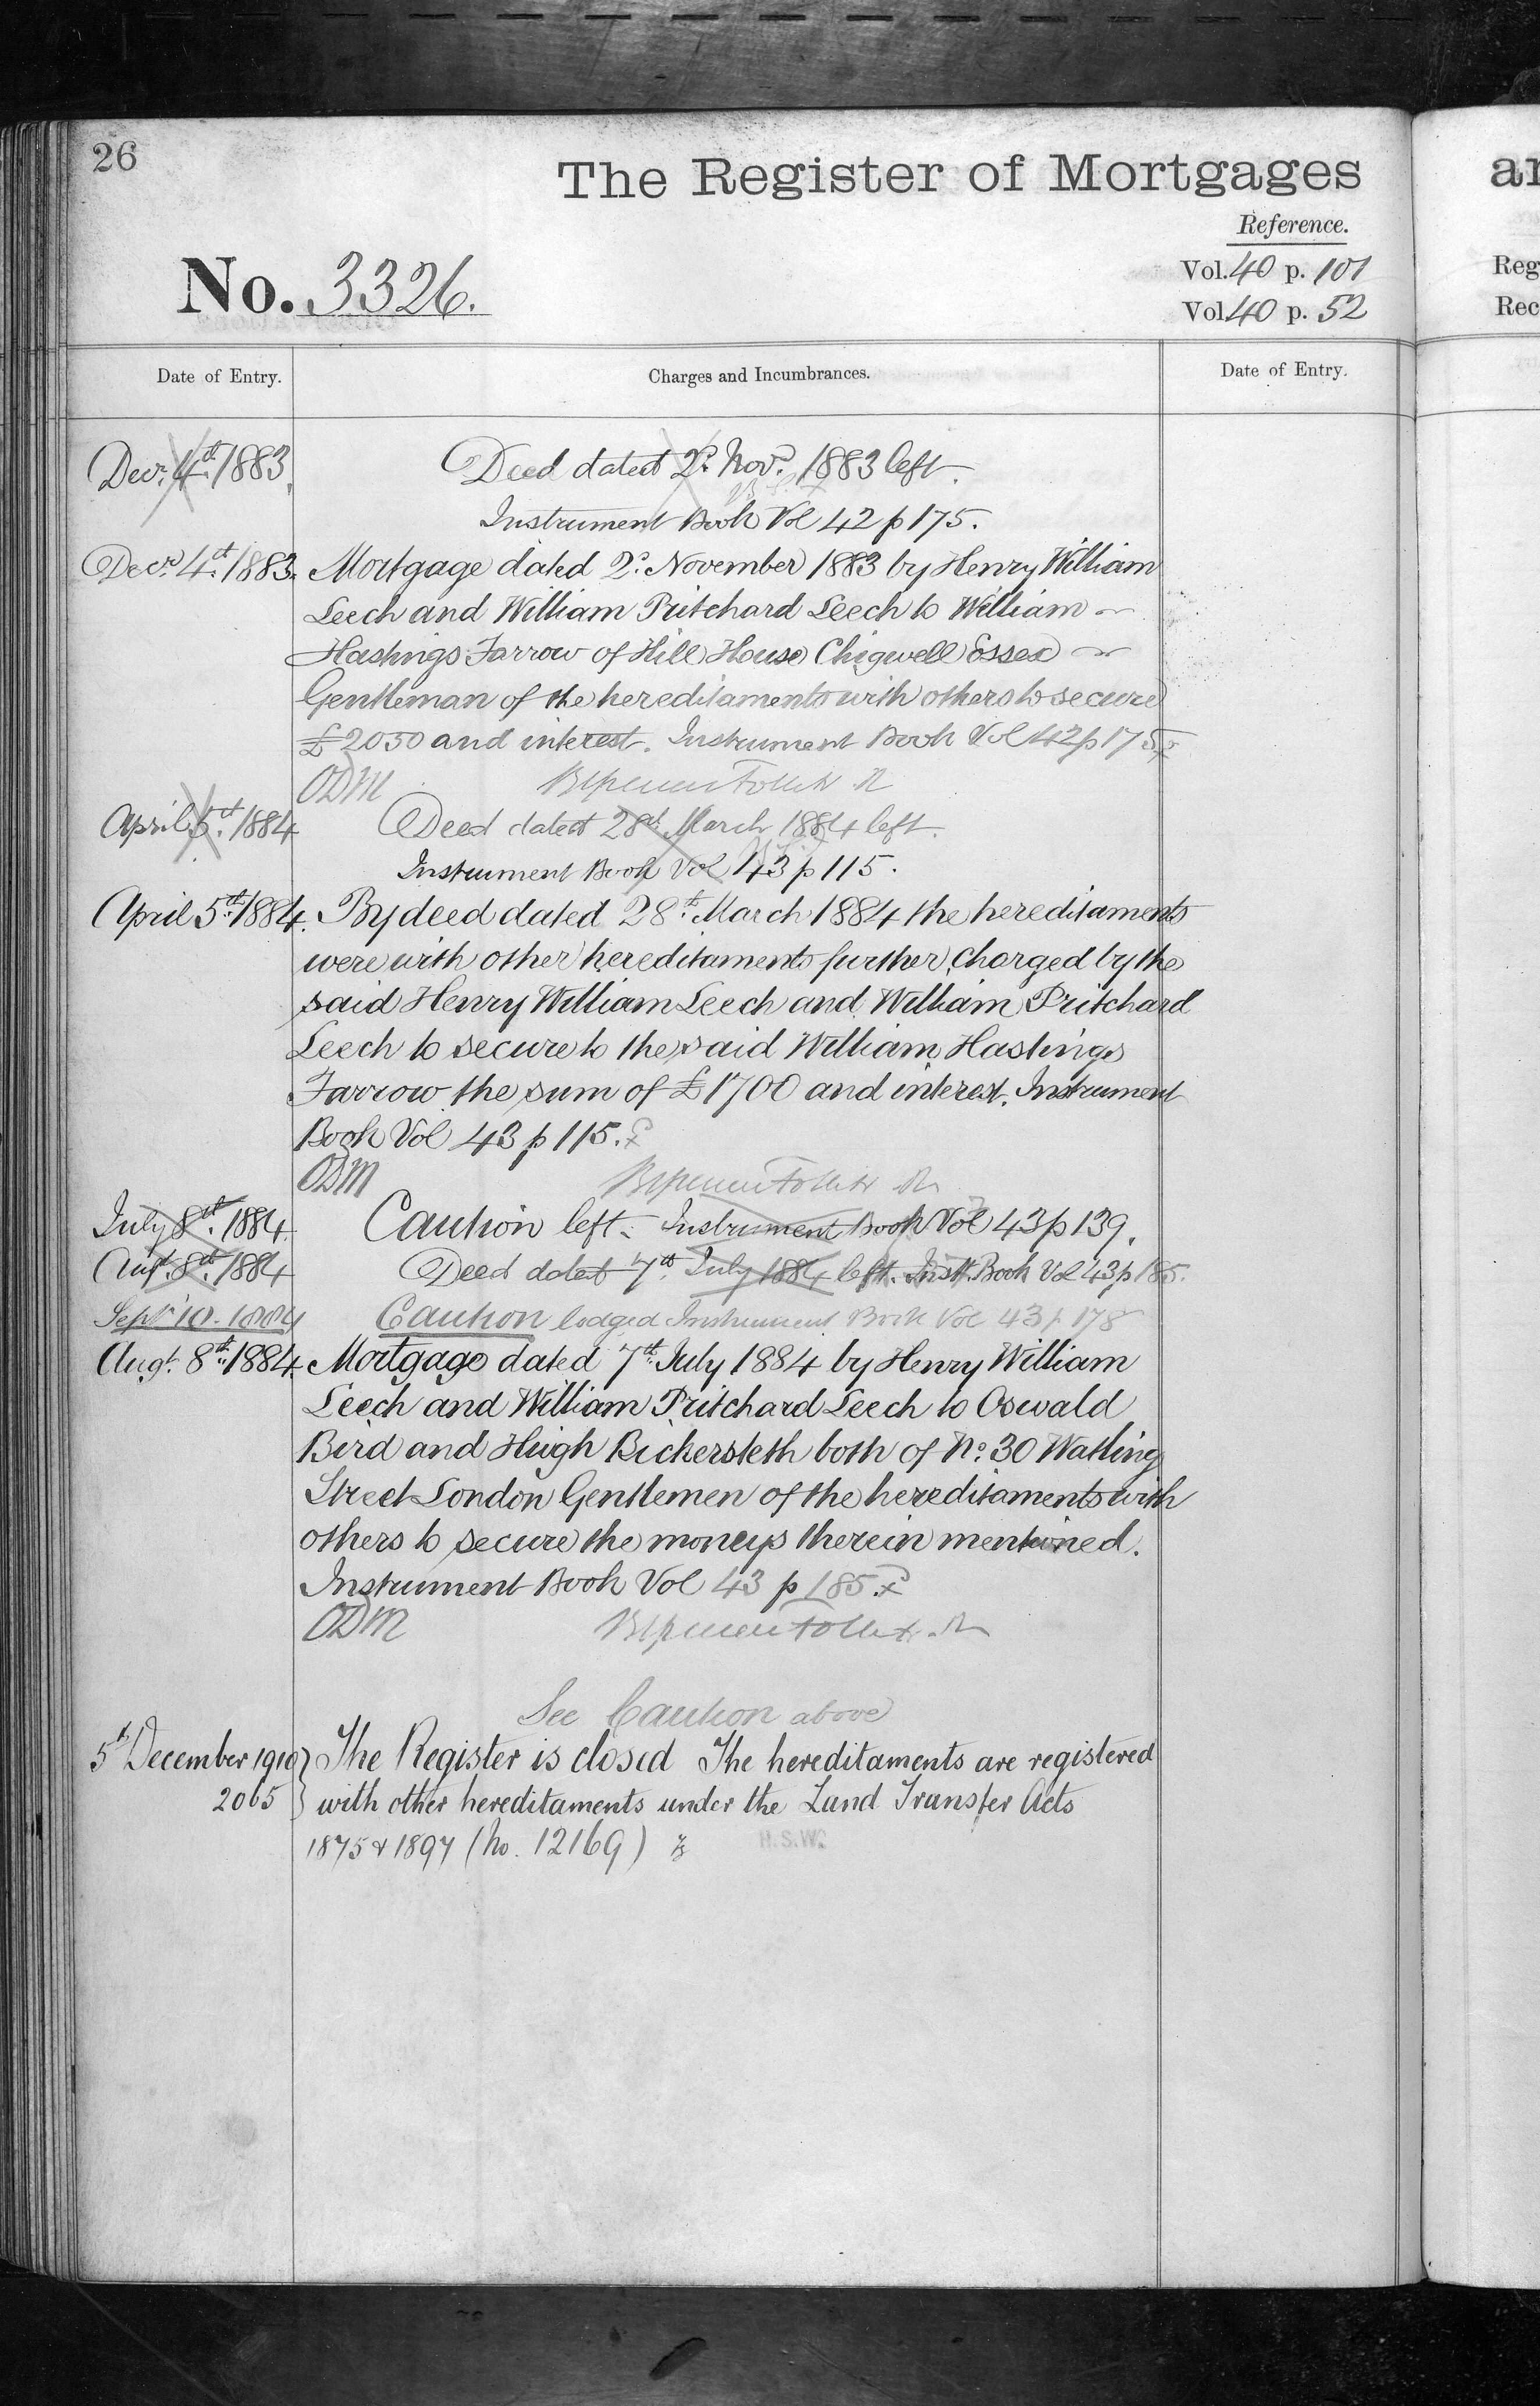 26
The Register of Mortgages
Reference.
No. 3326.
Vol. 40 p. 101
Vol. 40 p. 52
Date of Entry. Charges and Incumbrances. Date of Entry.
Decr. 4th. 1883. Deed dated 2d. Novr. 1883 left.
Instrument Book Vol 42 p 175.
Decr. 4th. 1883. Mortgage dated 2d. November 1883 by Henry William
Leech and William Pritchard Leech to William
Hastings Farrow of Hill House Chigwell Essex
Gentleman of the hereditaments with others to secure
£2050 and interest. Instrument Book Vol 42 p 175
ODM
April 5th. 1884 Deed dated 28th. March 1884 left.
Instrument Book Vol 43 p 115.
April 5th. 1884. By deed dated 28th. March 1884 the hereditaments
were with other hereditaments further charged by the
said Henry William Leech and William Pritchard
Leech to secure to the said William Hastings
Farrow the sum of £1700 and interest. Instrument
Book Vol 43 p 115.
ODM
July 8th. 1884. Caution left. Instrument Book Vol 43 p 139.
Augt. 8th. 1884 Deed dated 7th. July 1884 left. Instt. Book Vol 43 p 185.
Sept 10. 1884 Caution lodged Instrument Book Vol 43 p 178
Augt. 8th. 1884. Mortgage dated 7th. July 1884 by Henry William
Leech and William Pritchard Leech to Oswald
Bird and Hugh Bickersteth both of No. 30 Watling
Street London Gentlemen of the hereditaments with
others to secure the moneys therein mentioned.
Instrument Book Vol 43 p 185.
ODM
See Caution above
5th December 1910 } The Register is closed The hereditaments are registered
2065 } with other hereditaments under the Land Transfer Acts
1875 & 1897 (No. 12169)
H.S.W.
ar
Reg
Rec